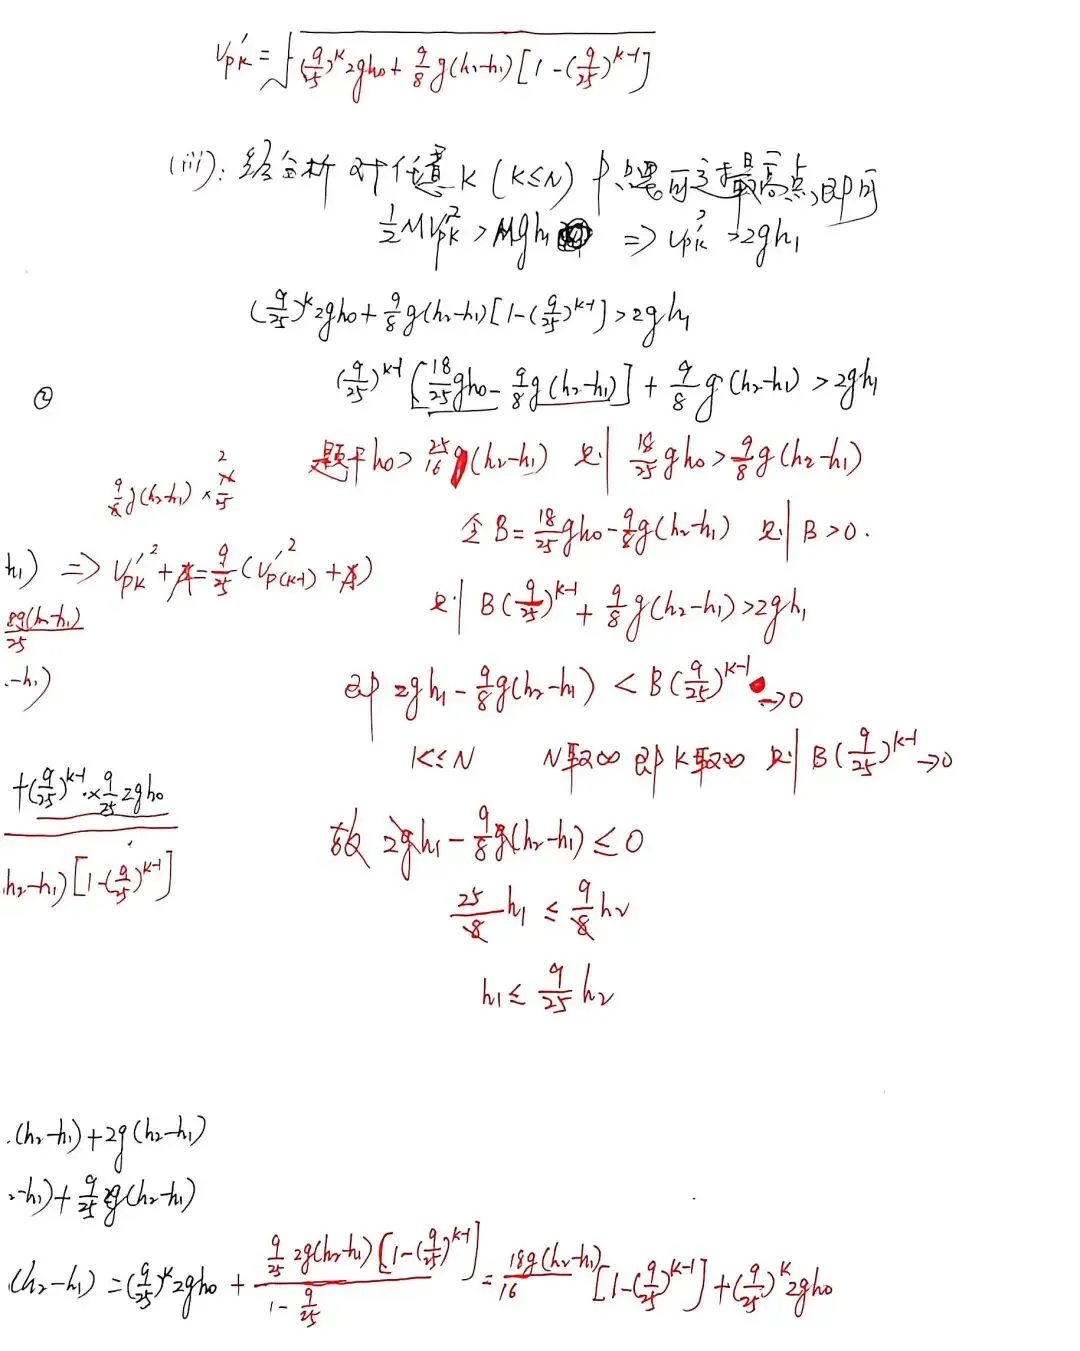 v'pk = √((9/25)^k 2gh₀ + 9/8 g(h₂-h₁)[1-(9/25)^(k-1)])
(iii): 经分析 对任意 K (K≤N) 只需可过最高点,即可
1/2 M v'pk² > Mgh₁ => v'pk² > 2gh₁
(9/25)^k 2gh₀ + 9/8 g(h₂-h₁)[1-(9/25)^(k-1)] > 2gh₁
(9/25)^(k-1) [18/25 gh₀ - 9/8 g(h₂-h₁)] + 9/8 g(h₂-h₁) > 2gh₁
②
题干 h₀ > 25/16 (h₂-h₁) 则 18/25 gh₀ > 9/8 g(h₂-h₁)
9/8 g(h₂-h₁) × 2/25
令 B = 18/25 gh₀ - 9/8 g(h₂-h₁) 则 B>0.
h₁) => v'pk² + = 9/25 (v'p(k-1)² + )
则 B(9/25)^(k-1) + 9/8 g(h₂-h₁) > 2gh₁
8g(h₂-h₁)/25
.-h₁)
即 2gh₁ - 9/8 g(h₂-h₁) < B(9/25)^(k-1) →0
K≤N N取∞ 即 K取∞ 则 B(9/25)^(k-1) →0
+(9/25)^(k-1)·×9/25 2gh₀
故 2gh₁ - 9/8 g(h₂-h₁) ≤ 0
h₂-h₁)[1-(9/25)^(k-1)]
25/8 h₁ ≤ 9/8 h₂
h₁ ≤ 9/25 h₂
.(h₂-h₁)+2g(h₂-h₁)
₂-h₁)+9/25 2g(h₂-h₁)
(h₂-h₁) = (9/25)^k 2gh₀ + 9/25 2g(h₂-h₁)[1-(9/25)^(k-1)]/(1-9/25) = 18g(h₂-h₁)/16 [1-(9/25)^(k-1)] + (9/25)^k 2gh₀